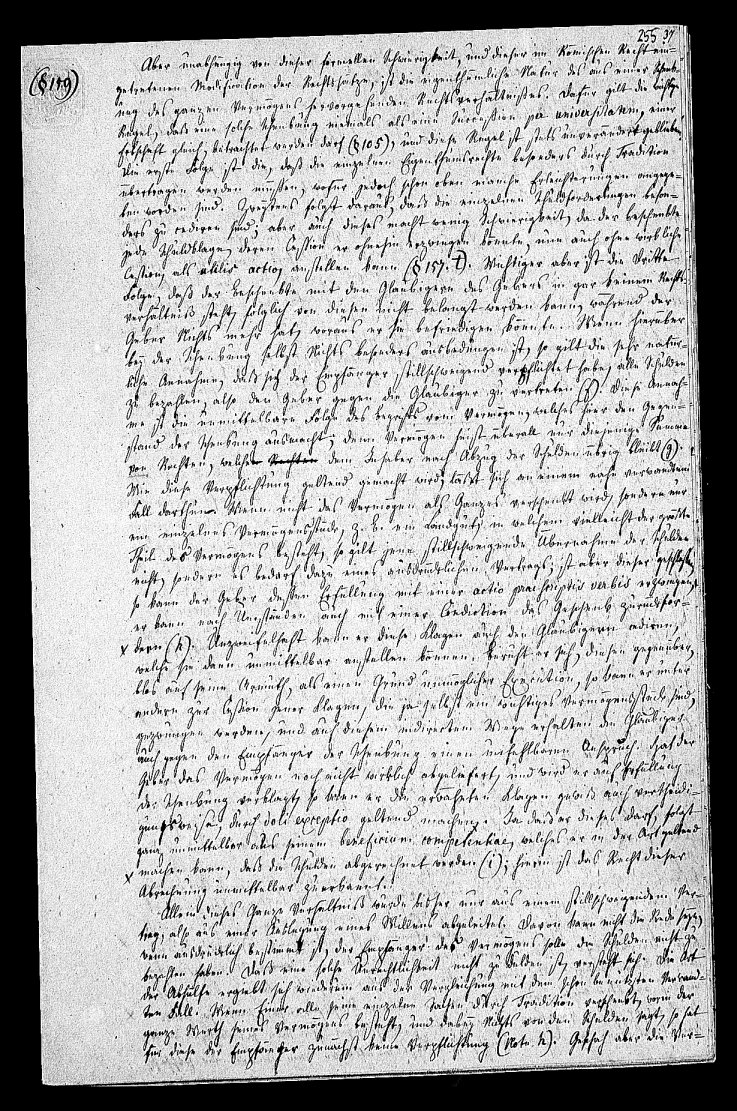 255 37
(§ 159)
Aber unabhängig von dieser formellen Schwierigkeit, und dieser im Römischen Recht ein-
getretenen Modification der Rechtssätze, ist die eigenthümliche Natur des aus einer Schenk-
ung des ganzen Vermögens hervorgehenden Rechtsverhältnisses. Dafür gilt die wichtige
Regel, daß eine solche Schenkung niemals als eine Succession per universitatem, einer
Erbschaft gleich, betrachtet werden darf (§ 105), und diese Regel ist stets unverändert geblieben.
Die erste Folge ist die, daß die einzelnen Eigenthumsrechte besonders durch Tradition
übertragen werden müssen, wofür jedoch schon oben manche Erleichterungen angege-
ben worden sind. Zweytens folgt daraus, daß die einzelnen Schuldforderungen beson-
ders zu cediren sind, aber auch dieses macht wenig Schwierigkeit, da der Beschenkte
jede Schuldklage, deren Cession er ohnehin erzwingen könnte, nun auch ohne wirkliche
Cession, als utilis actio, anstellen kann (§ 157. t). Wichtiger aber ist die dritte
Folge, daß der Beschenkte mit den Gläubigern des Gebers in gar keinem Rechts-
verhältniß steht, folglich von diesen nicht belangt werden kann, während der
Geber Nichts mehr hat, woraus er sie befriedigen könnte. Wenn hierüber
bey der Schenkung selbst Nichts besonders ausbedungen ist, so gilt die sehr natür-
liche Annahme, daß sich der Empfänger stillschweigend verpflichtet habe, alle Schulden
zu bezahlen, also den Geber gegen die Gläubiger zu vertreten (f). Diese Annah-
me ist die unmittelbare Folge des Begriffs vom Vermögen, welches hier den Gegen-
stand der Schenkung ausmacht; denn Vermögen heißt überall nur diejenige Summe
von Rechten, welche dem Inhaber nach Abzug der Schulden übrig bleibt (g).
Wie diese Verpflichtung geltend gemacht wird, läßt sich an einem nahe verwandten
Fall darthun. Wenn nicht das Vermögen als Ganzes verschenkt wird, sondern nur
ein einzelnes Vermögensstück, z. B. ein Landgut, in welchem vielleicht der größte
Theil des Vermögens besteht, so gilt jene stillschweigende Übernahme der Schulden
nicht, sondern es bedarf dazu eines ausdrücklichen Vertrags; ist aber dieser geschlossen,
so kann der Geber dessen Erfüllung mit einer actio praescriptis verbis erzwingen,
er kann nach Umständen auch mit einer Condiction das Geschenk zurückfor-
x dern (h). Unzweifelhaft kann er diese Klagen auch den Gläubigern cediren,
welche sie dann unmittelbar anstellen können; beruft er sich, diesen gegenüber,
blos auf seine Armuth, als einen Grund unmöglicher Execution, so kann er unter
andern zur Cession jener Klagen, die ja selbst ein wichtiges Vermögensstück sind,
gezwungen werden, und auf diesem indirecten Wege erhalten die Gläubiger
auch gegen den Empfänger der Schenkung einen unfehlbaren Anspruch. Hat der
Geber das Vermögen noch nicht wirklich abgeliefert, und wird er auf Erfüllung
der Schenkung verklagt, so kann er die erwähnten Klagen gewiß auch vertheidi-
gungsweise, durch doli exceptio geltend machen. Ja daß er dieses darf, folgt
ganz unmittelbar aus seinem beneficium competentiae, welches er in der Art geltend
x machen kann, daß die Schulden abgerechnet werden (i); hierin ist das Recht dieser
Abrechnung unmittelbar zuerkannt.
Allein dieses Ganze Verhältniß wurde bisher nur aus einem stillschweigenden Ver-
trag, also aus einer Auslegung eines Willens abgeleitet. Davon kann nicht die Rede seyn,
wenn ausdrücklich bestimmt ist, der Empfänger des Vermögens solle die Schulden nicht zu
bezahlen haben. Daß eine solche Unrechtlichkeit nicht zu dulden ist, versteht sich. Die Art
der Abhülfe ergiebt sich wiederum aus der Vergleichung mit dem schon benutzten verwand-
ten Fall. Wenn Einer alle seine einzelnen Sachen durch Tradition verschenkt, worin der
ganze Werth seines Vermögens besteht, und dabey Nichts von den Schulden sagt, so hat
für diese der Empfänger zunächst keine Verpflichtung (Note h). Geschah aber die Ver-